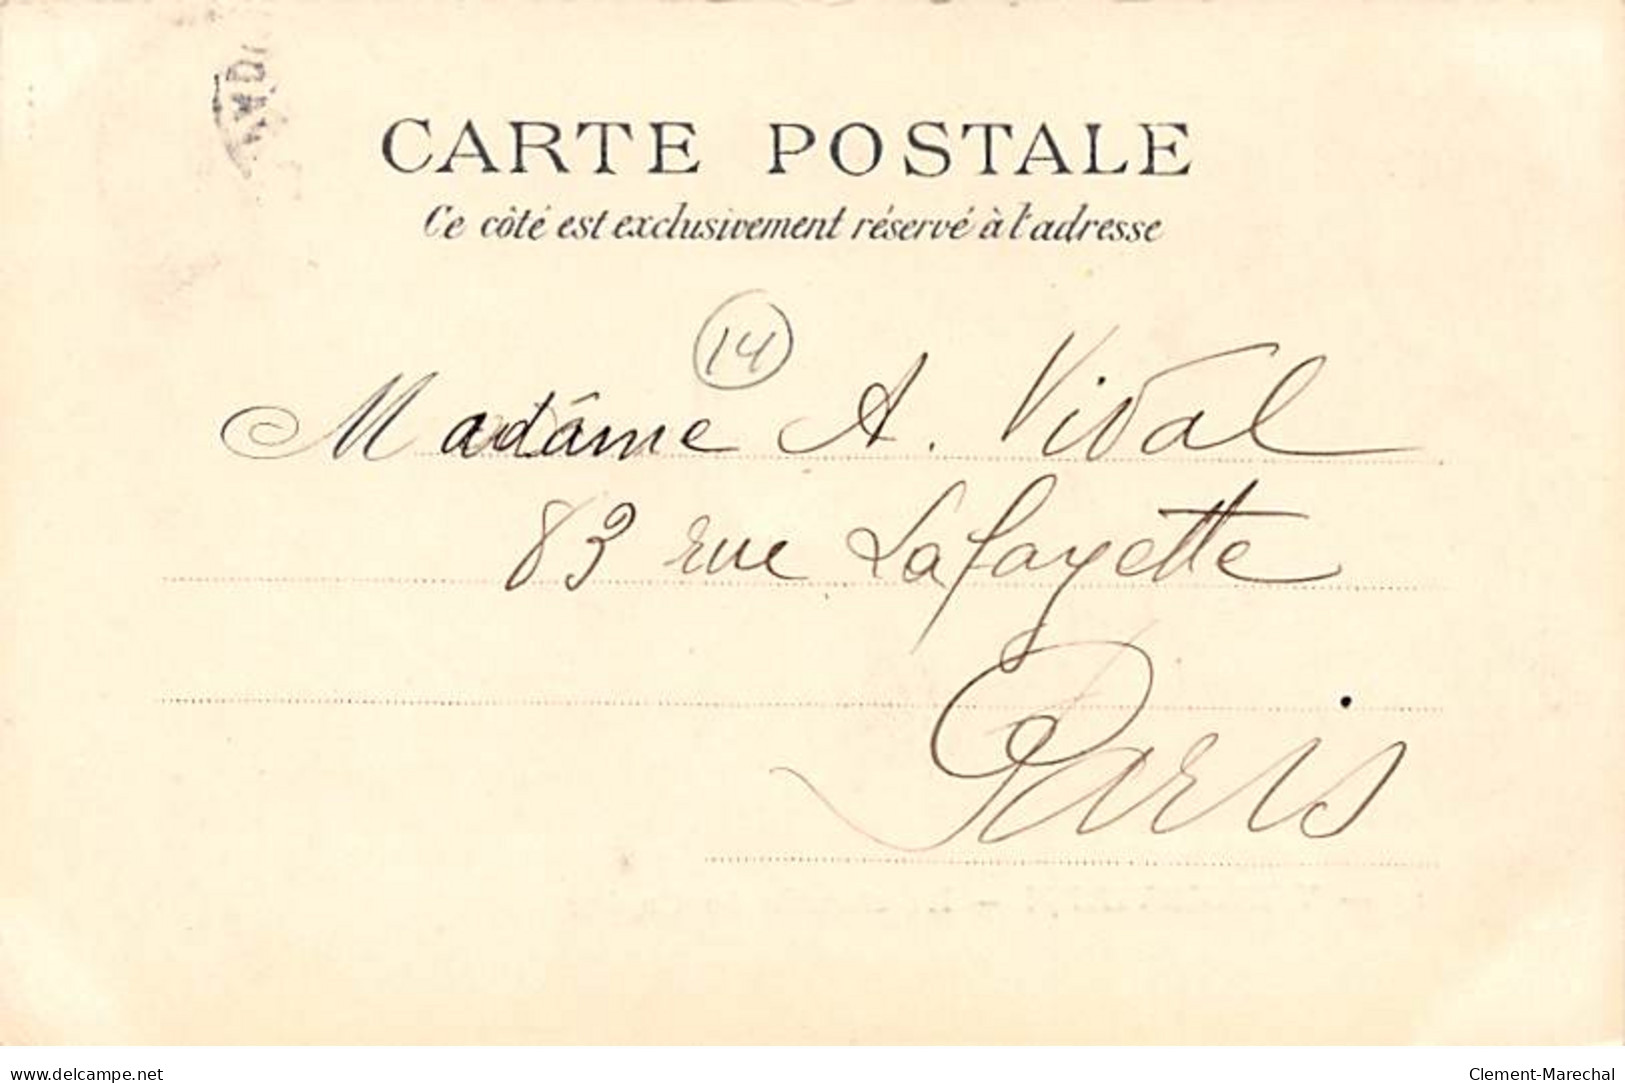 CARTE POSTALE
Ce côté est exclusivement réservé à l'adresse
14
Madame A. Vidal
83 rue Lafayette
Paris
www.delcampe.net
Clement-Marechal